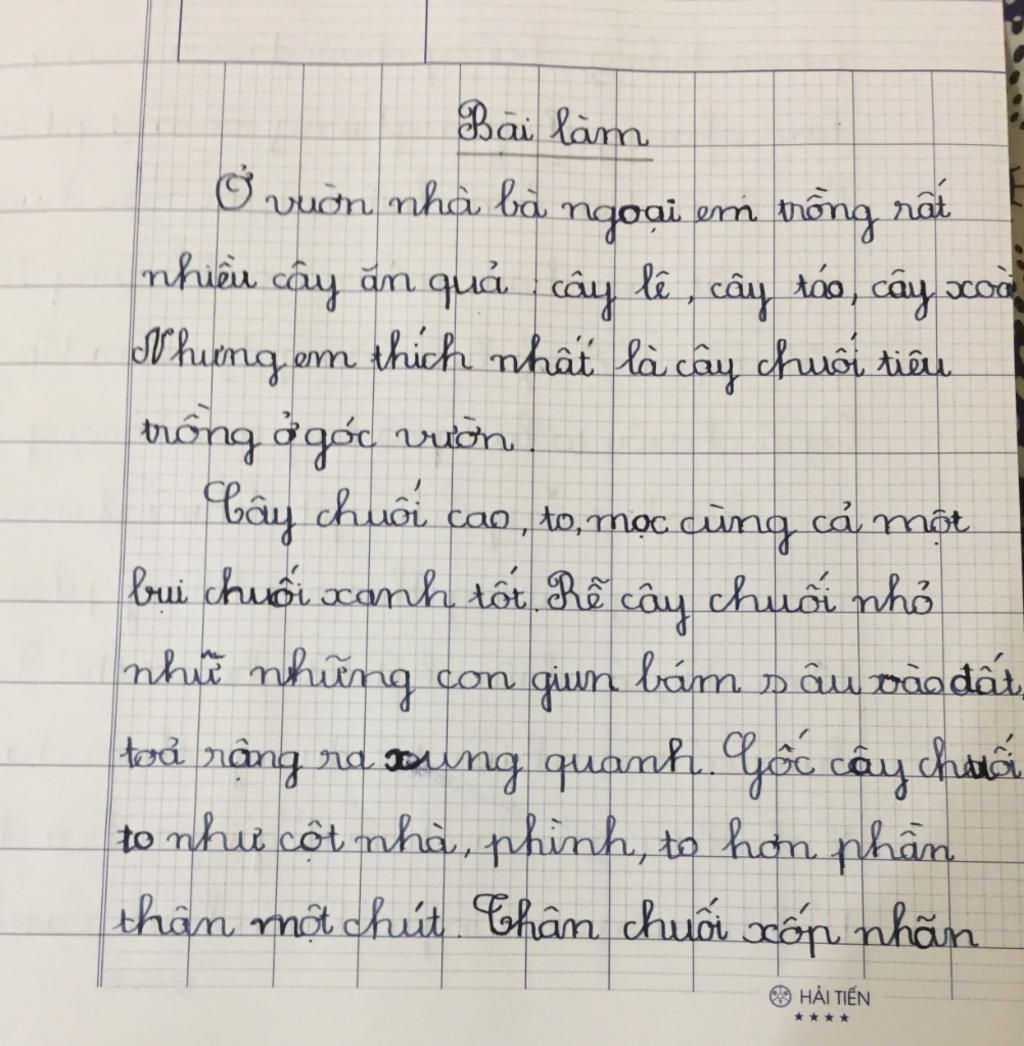 Bài làm
Ở vườn nhà bà ngoại em trồng rất
nhiều cây ăn quả: cây lê, cây táo, cây xoài
Nhưng em thích nhất là cây chuối tiêu
trồng ở góc vườn.
Cây chuối cao, to, mọc cùng cả một
bụi chuối xanh tốt. Rễ cây chuối nhỏ
như những con giun bám sâu vào đất,
toả rộng ra xung quanh. Gốc cây chuối
to như cột nhà, phình, to hơn phần
thân một chút. Thân chuối xốp nhẵn
HẢI TIẾN